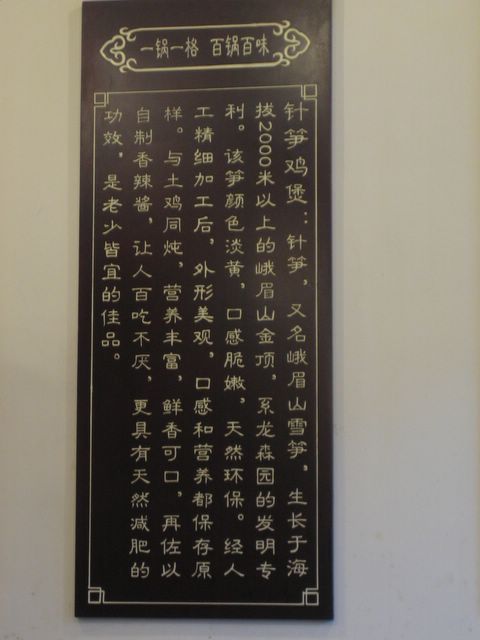 一锅一格 百锅百味
针笋鸡煲：针笋，又名峨眉山雪笋，生长于海
拔2000米以上的峨眉山金顶，系龙森园的发明专
利。该笋颜色淡黄，口感脆嫩，天然环保。经人
工精细加工后，外形美观，口感和营养都保存原
样。与土鸡同炖，营养丰富，鲜香可口，再佐以
自制香辣酱，让人百吃不厌，更具有天然减肥的
功效，是老少皆宜的佳品。